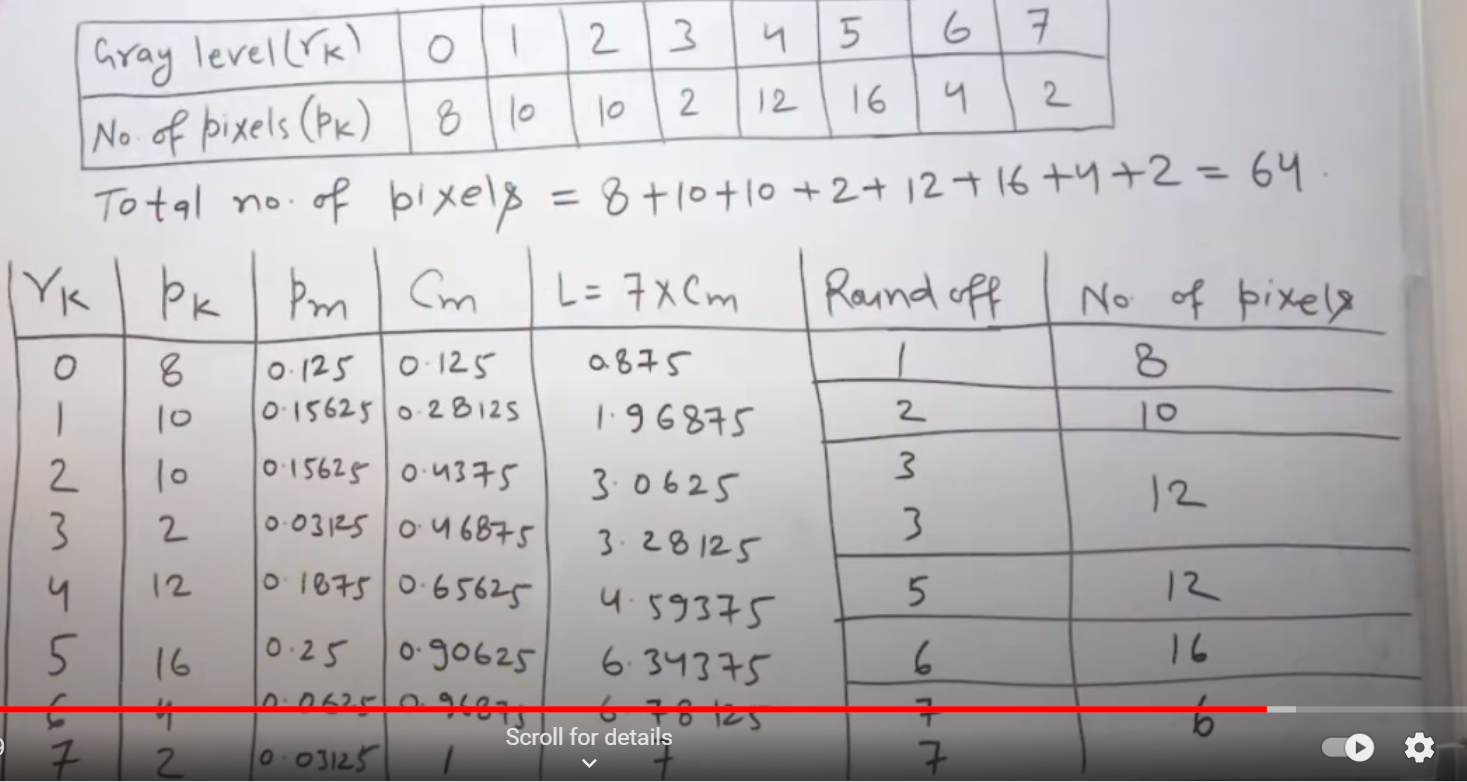 Gray level (rK) 0 1 2 3 4 5 6 7
No. of pixels (pK) 8 10 10 2 12 16 4 2
Total no. of pixels = 8+10+10+2+12+16+4+2 = 64.
rK pK pm Cm L = 7 x Cm Round off No of pixels
0 8 0.125 0.125 0.875 1 8
1 10 0.15625 0.28125 1.96875 2 10
2 10 0.15625 0.4375 3.0625 3 12
3 2 0.03125 0.46875 3.28125 3
4 12 0.1875 0.65625 4.59375 5 12
5 16 0.25 0.90625 6.34375 6 16
6 4 0.0625 0.96875 6.78125 7 6
Scroll for details
7 2 0.03125 1 7 7